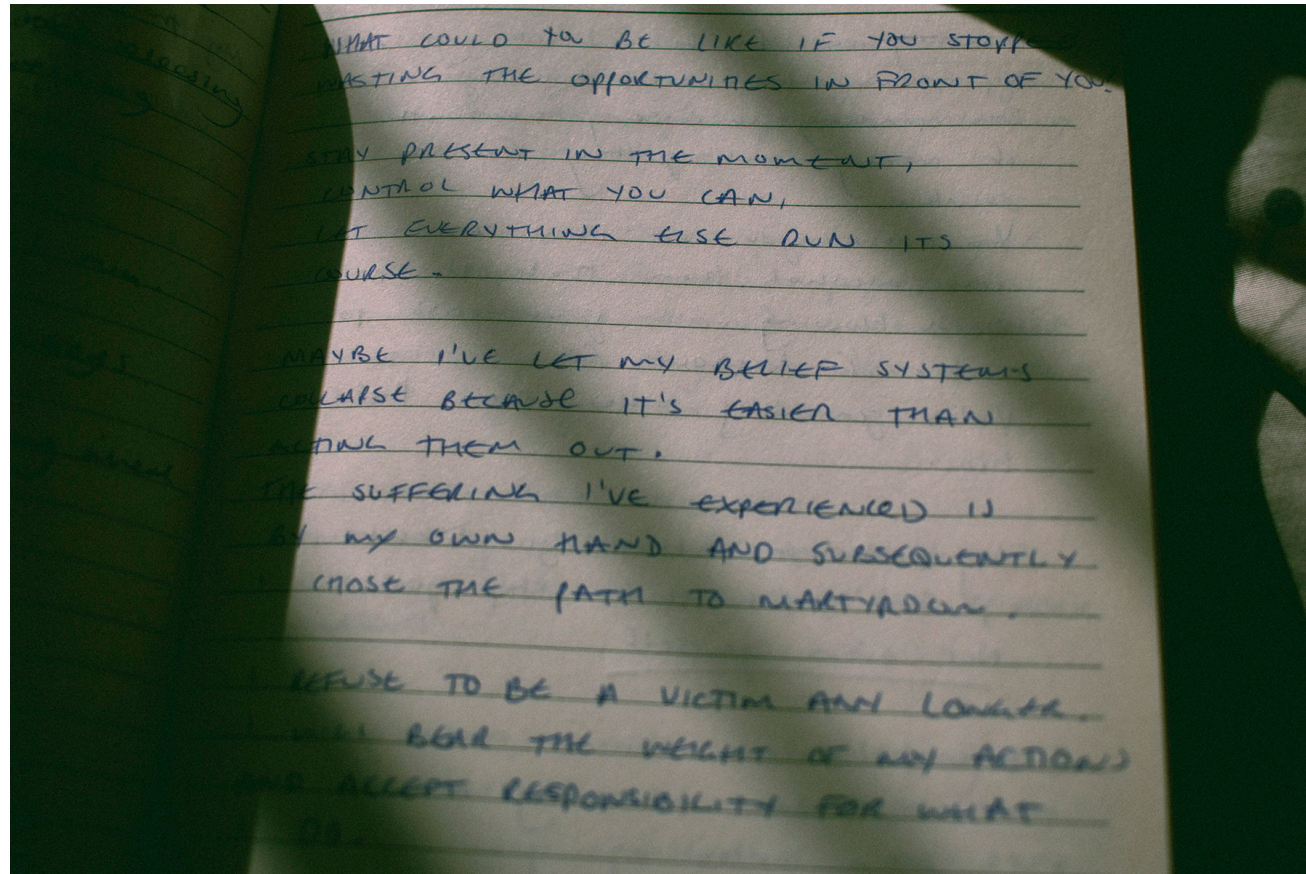 pleasing
WHAT COULD YOU BE LIKE IF YOU STOPPED
WASTING THE OPPORTUNITIES IN FRONT OF YOU!
STAY PRESENT IN THE MOMENT,
CONTROL WHAT YOU CAN,
LET EVERYTHING ELSE RUN ITS
COURSE.
MAYBE I'VE LET MY BELIEF SYSTEMS
COLLAPSE BECAUSE IT'S EASIER THAN
ACTING THEM OUT.
THE SUFFERING I'VE EXPERIENCED IS
BY MY OWN HAND AND SUBSEQUENTLY
I CHOSE THE PATH TO MARTYRDOM.
I REFUSE TO BE A VICTIM ANY LONGER.
I WILL BEAR THE WEIGHT OF MY ACTIONS
AND ACCEPT RESPONSIBILITY FOR WHAT
DO.